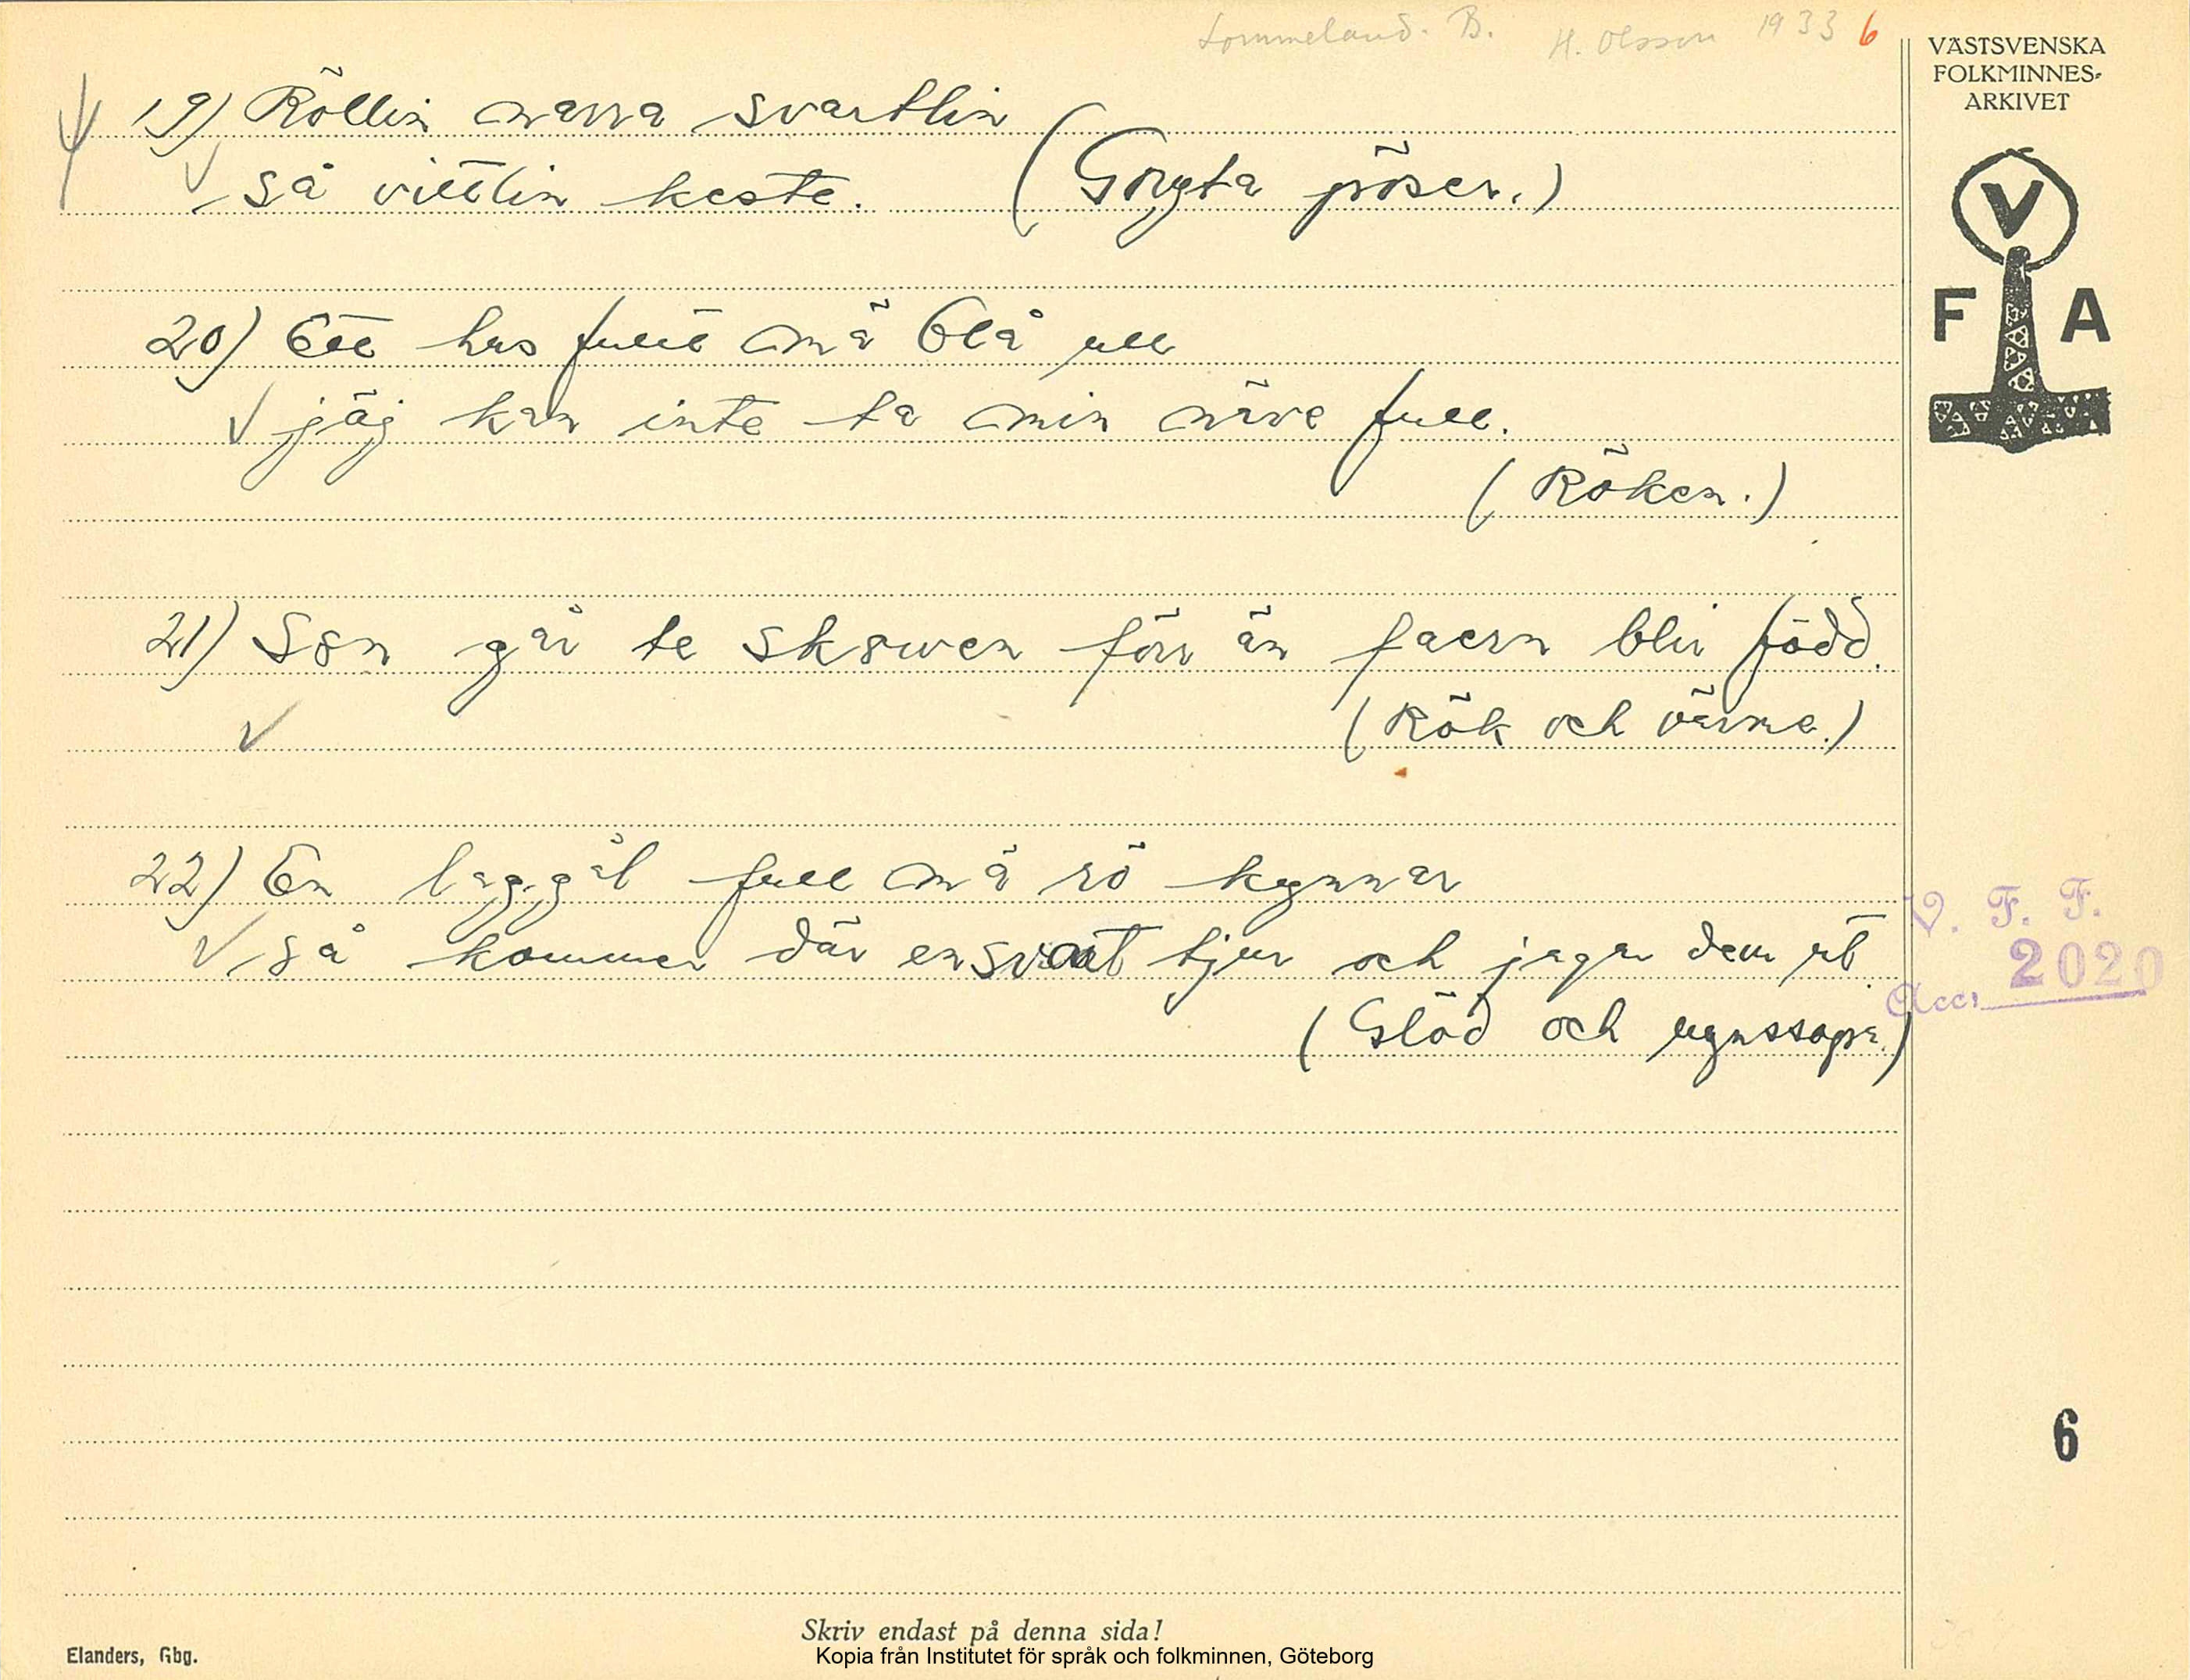 Lommeland. B. H. Olsson 1933 6
VÄSTSVENSKA
FOLKMINNES-
ARKIVET
V
F A
19) Röllin narra svartlin
så vittlin keste. (Gryta pöser.)
20) Ett hus fullt mä blå ull
jäj kan inte ta min näve full.
(Röken.)
21) Son går te skowen förr än faern blir född.
(Rök och värme.)
22) En laggål full mä rö kynnar
så kommer där en svart tjur och jagar dem ut.
(Glöd och ugnssopa.)
V. F. F.
Acc. 2020
6
Skriv endast på denna sida!
Elanders, Gbg.
Kopia från Institutet för språk och folkminnen, Göteborg